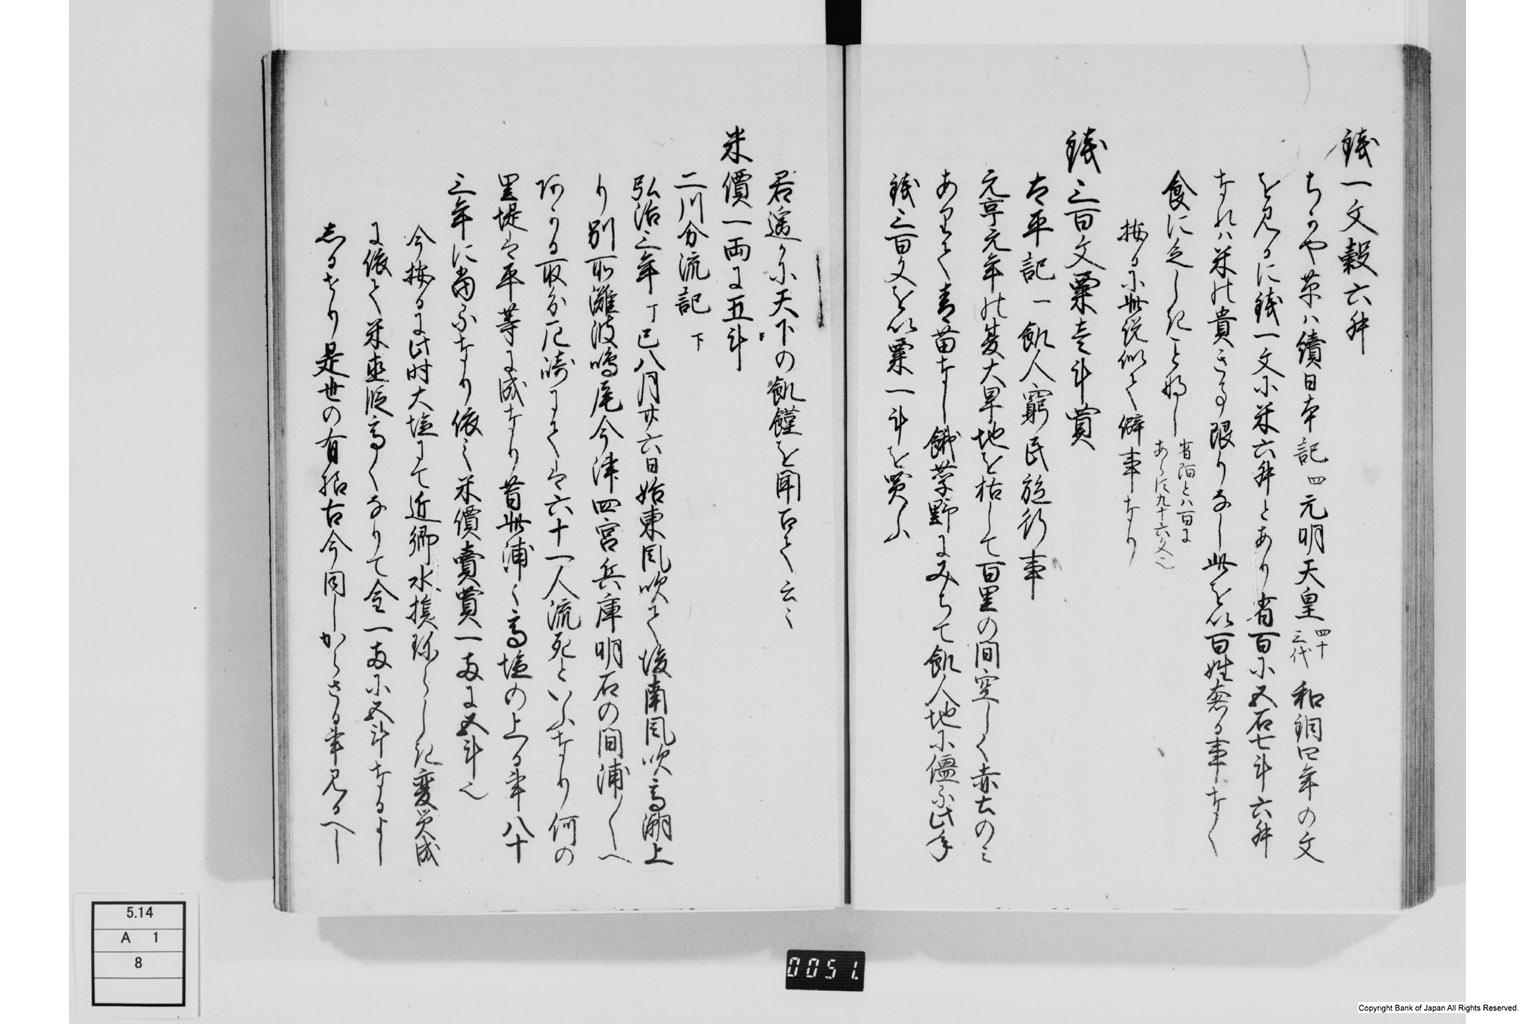 銭一文穀六舛
ちかや草ハ續日本記四元明天皇四十三代和銅四年の文
を見るに銭一文に米六舛とあり省百に五石七斗六舛
なれハ米の貴さる限りなし此を以百姓愁る事なく
食に乏しきこと好し省百とハ百にあらす九十六文也
按るに此説似て僻事なり
銭三百文粟壱斗買
太平記一飢人窮民施行事
元亨元年の夏大旱地を枯して百里の間空しく赤土のミ
ありて青苗なし餓莩野にみちて飢人地に僵る此年
銭三百文を以粟一斗を買ふ
君遥かに天下の飢饉を聞召て云々
米價一両に五斗
二川分流記下
弘治三年丁巳八月廿六日始東風吹て後南風吹高潮上
り別而灘波鳴尾今津四宮兵庫明石の間浦々へ
取分尼崎にてハ六十一人流死といふなり何の
里堤も平等に成なり昔此浦く高塩の上る事八十
三年に當るなり依之米價賣買一両に五斗也
今按るに此時大塩にて近郷水損
に依て米直段高くなりて金一両に五斗なるよし
しるせり是世の有様古今同しからさる事見るへし
5.14
A 1
8
0051.
Copyright Bank of Japan All Rights Reserved.